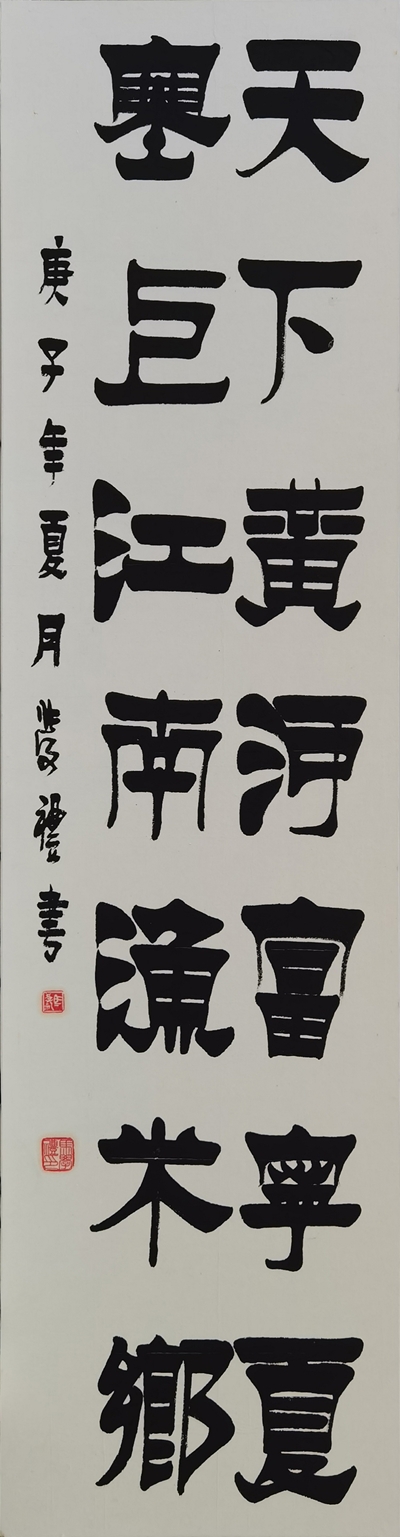 天下黃河富寧夏
塞上江南漁米鄉
庚子年夏月 禮書